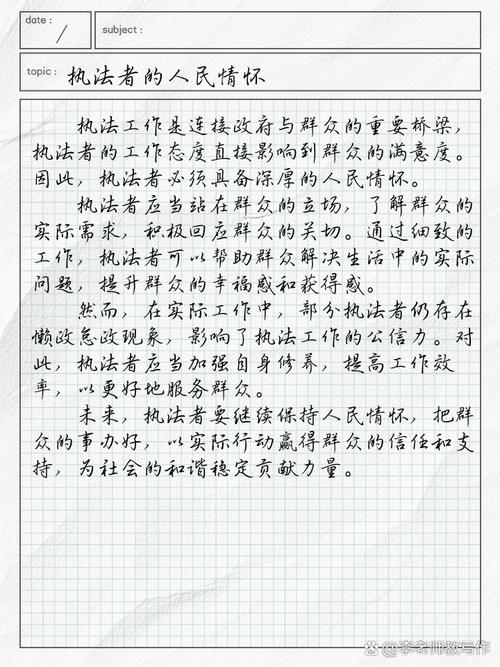 date :
subject :
topic :
执法者的人民情怀
执法工作是连接政府与群众的重要桥梁，
执法者的工作态度直接影响到群众的满意度。
因此，执法者必须具备深厚的人民情怀。
执法者应当站在群众的立场，了解群众的
实际需求，积极回应群众的关切。通过细致的
工作，执法者可以帮助群众解决生活中的实际
问题，提升群众的幸福感和获得感。
然而，在实际工作中，部分执法者仍存在
懒政怠政现象，影响了执法工作的公信力。对
此，执法者应当加强自身修养，提高工作效
率，以更好地服务群众。
未来，执法者要继续保持人民情怀，把群
众的事办好，以实际行动赢得群众的信任和支
持，为社会的和谐稳定贡献力量。
@李老师教写作